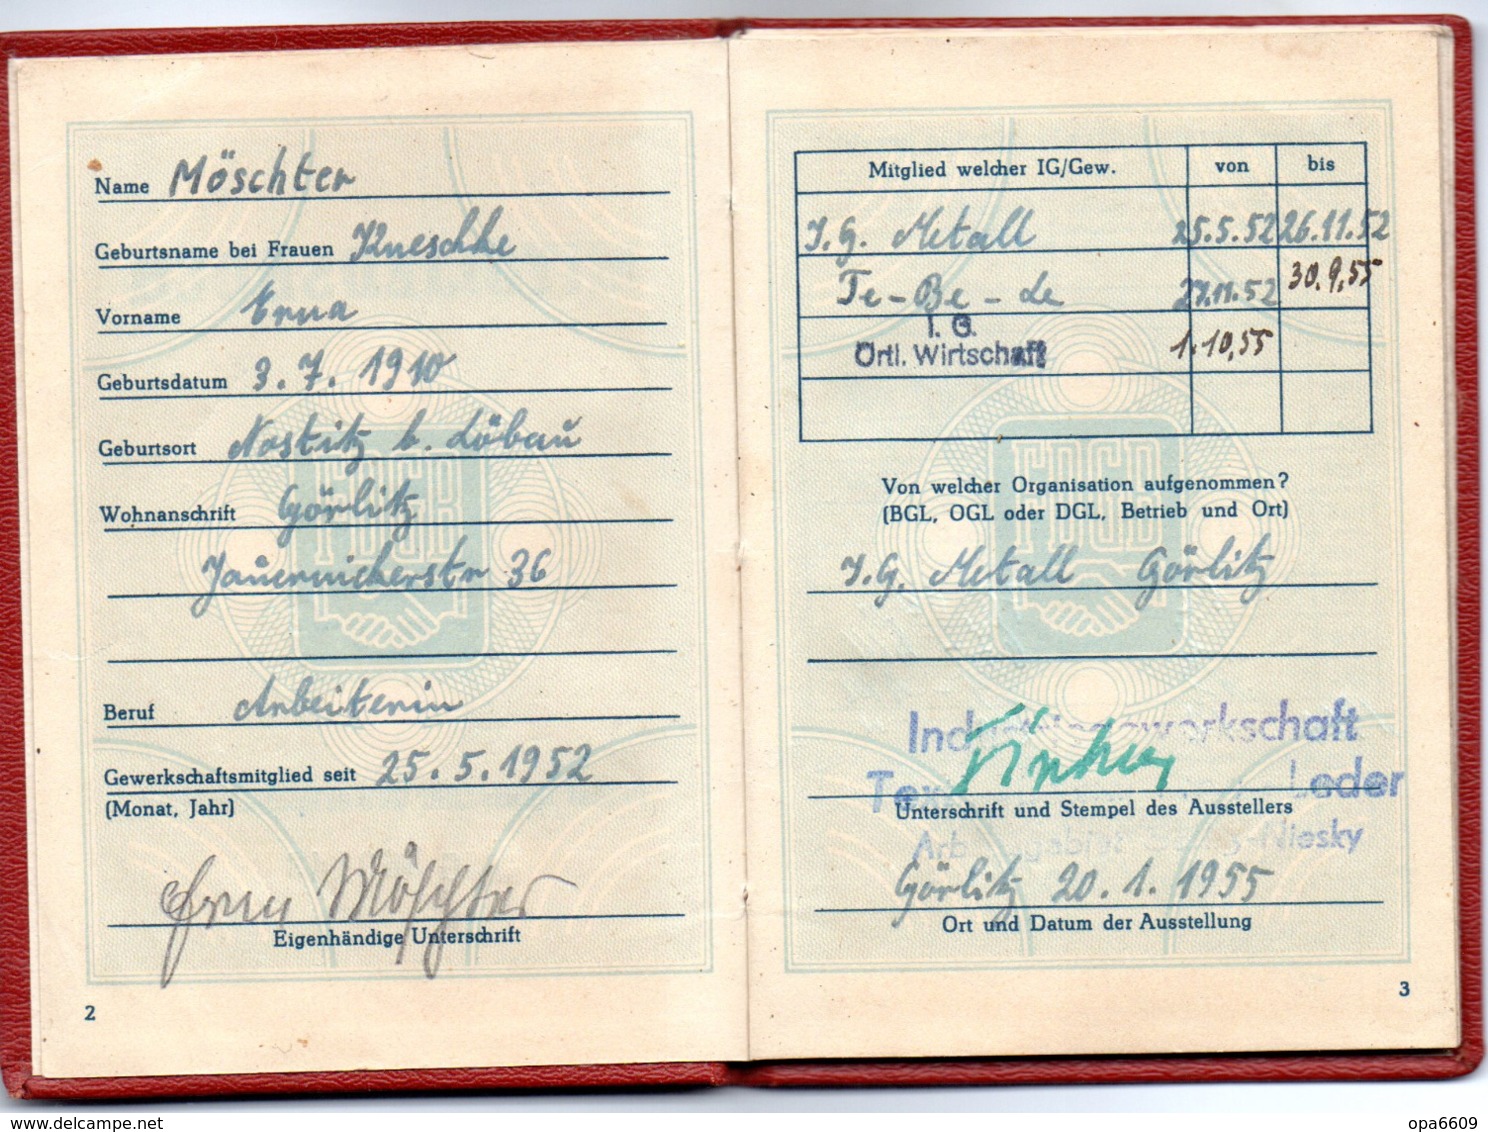 Name Möschter
Geburtsname bei Frauen Kneschke
Vorname Erna
Geburtsdatum 3. 7. 1910
Geburtsort Nostitz b. Löbau
Wohnanschrift Görlitz
Jauernickerstr 36
Beruf Arbeiterin
Gewerkschaftsmitglied seit 25. 5. 1952
(Monat, Jahr)
Erna Möschter
Eigenhändige Unterschrift
2
FDGB
Mitglied welcher IG/Gew. von bis
I. G. Metall 25.5.52 26.11.52
Te-Be-Le 27.11.52 30.9.55
I. G.
Örtl. Wirtschaft 1.10,55
Von welcher Organisation aufgenommen?
(BGL, OGL oder DGL, Betrieb und Ort)
I.G. Metall Görlitz
FDGB
Industriegewerkschaft
Leder
Unterschrift und Stempel des Ausstellers
Niesky
Görlitz 20. 1. 1955
Ort und Datum der Ausstellung
3
www.delcampe.net
opa6609